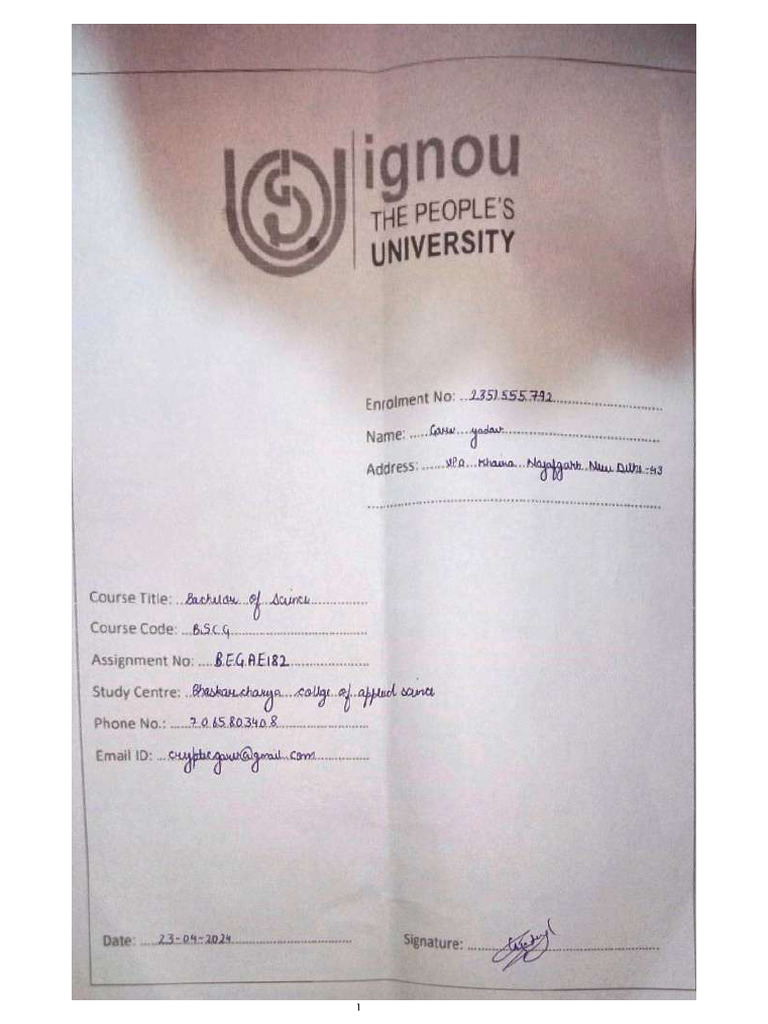 ignou
THE PEOPLE'S
UNIVERSITY
Enrolment No: 2351555792
Name: yadav
Address: Najafgarh New Delhi-43
Course Title: Bachelor of Science
Course Code: B.S.C.G
Assignment No: B.E.G.AE182
Study Centre: Bhaskaracharya college of applied science
Phone No.: 7065803408
Email ID: @gmail.com
Date: 23-04-2024
Signature:
1